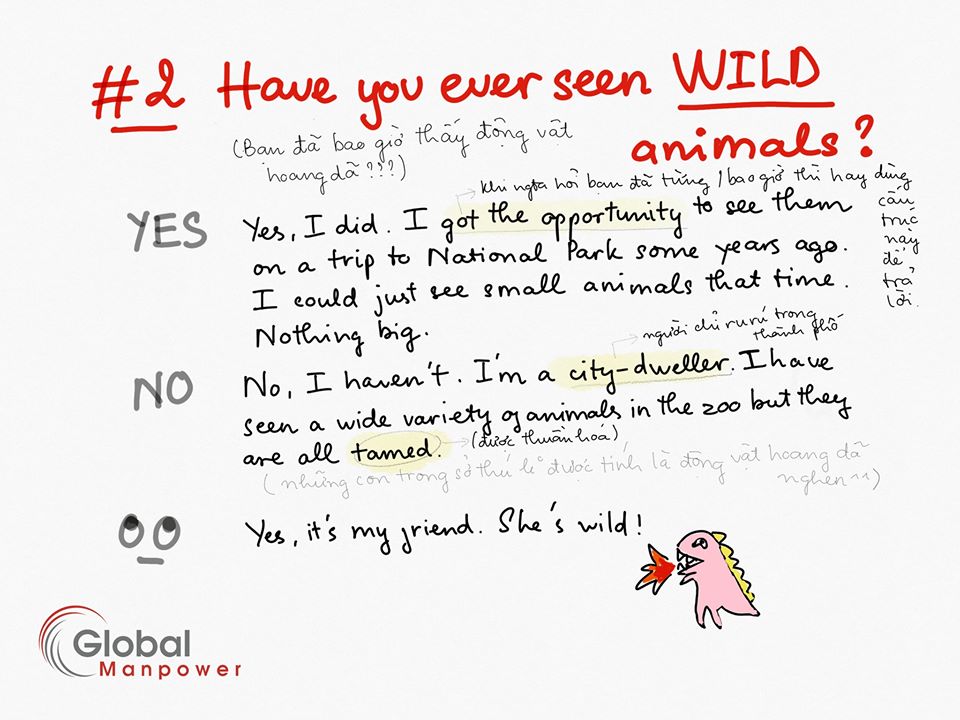 #2 Have you ever seen WILD
animals?
(Bạn đã bao giờ thấy động vật
hoang dã ???)
Khi ngta hỏi bạn đã từng / bao giờ thì hay dùng
cấu
trúc
này
để
trả
lời.
YES
Yes, I did. I got the opportunity to see them
on a trip to National Park some years ago.
I could just see small animals that time.
Nothing big.
người chỉ ru rú trong
thành phố
NO
No, I haven't. I'm a city-dweller. I have
seen a wide variety of animals in the zoo but they
are all tamed. (được thuần hoá)
(những con trong sở thú k được tính là động vật hoang dã
nghen ^^)
Yes, it's my friend. She's wild!
Global
Manpower